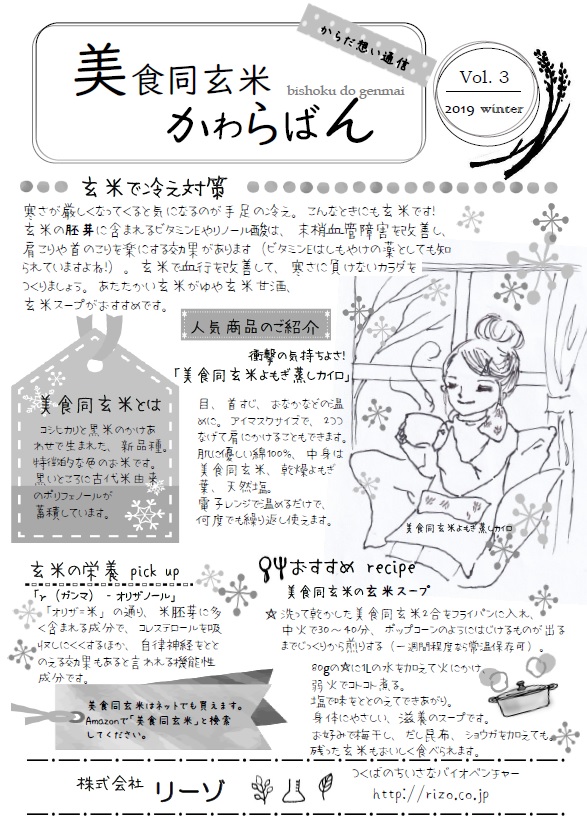 からだ想い通信
美食同玄米
bishoku do genmai
かわらばん
Vol. 3
2019 winter
玄米で冷え対策
寒さが厳しくなってくると気になるのが手足の冷え。こんなときにも玄米です!
玄米の胚芽に含まれるビタミンEやリノール酸は、末梢血管障害を改善し、
肩こりや首のこりを楽にする効果があります（ビタミンEはしもやけの薬としても知
られていますよね!）。玄米で血行を改善して、寒さに負けないカラダを
つくりましょう。あたたかい玄米がゆや玄米甘酒、
玄米スープがおすすめです。
人気商品のご紹介
衝撃の気持ちよさ!
「美食同玄米よもぎ蒸しカイロ」
目、首すじ、おなかなどの温
めに。アイマスクサイズで、2つつ
なげて肩にかけることもできます。
肌に優しい綿100%、中身は
美食同玄米、乾燥よもぎ
葉、天然塩。
電子レンジで温めるだけで、
何度でも繰り返し使えます。
美食同玄米よもぎ蒸しカイロ
美食同玄米とは
コシヒカリと黒米のかけあ
わせで生まれた、新品種。
特徴的な色のお米です。
黒いところに古代米由来
のポリフェノールが
蓄積しています。
玄米の栄養 pick up
「γ（ガンマ）‐オリザノール」
「オリザ=米」の通り、米胚芽に多
く含まれる成分で、コレステロールを吸
収しにくくするほか、自律神経をとと
のえる効果もあると言われる機能性
成分です。
美食同玄米はネットでも買えます。
Amazonで「美食同玄米」と検索
してください。
おすすめ recipe
美食同玄米の玄米スープ
☆洗って乾かした美食同玄米2合をフライパンに入れ、
中火で30～40分、ポップコーンのようにはじけるものが出る
までじっくりから煎りする（一週間程度なら常温保存可）。
80gの☆に1Lの水を加えて火にかけ、
弱火でコトコト煮る。
塩で味をととのえてできあがり。
身体にやさしい、滋養のスープです。
お好みで梅干し、だし昆布、ショウガを加えても。
残った玄米もおいしく食べられます。
株式会社 リーゾ
つくばのちいさなバイオベンチャー
http://rizo.co.jp